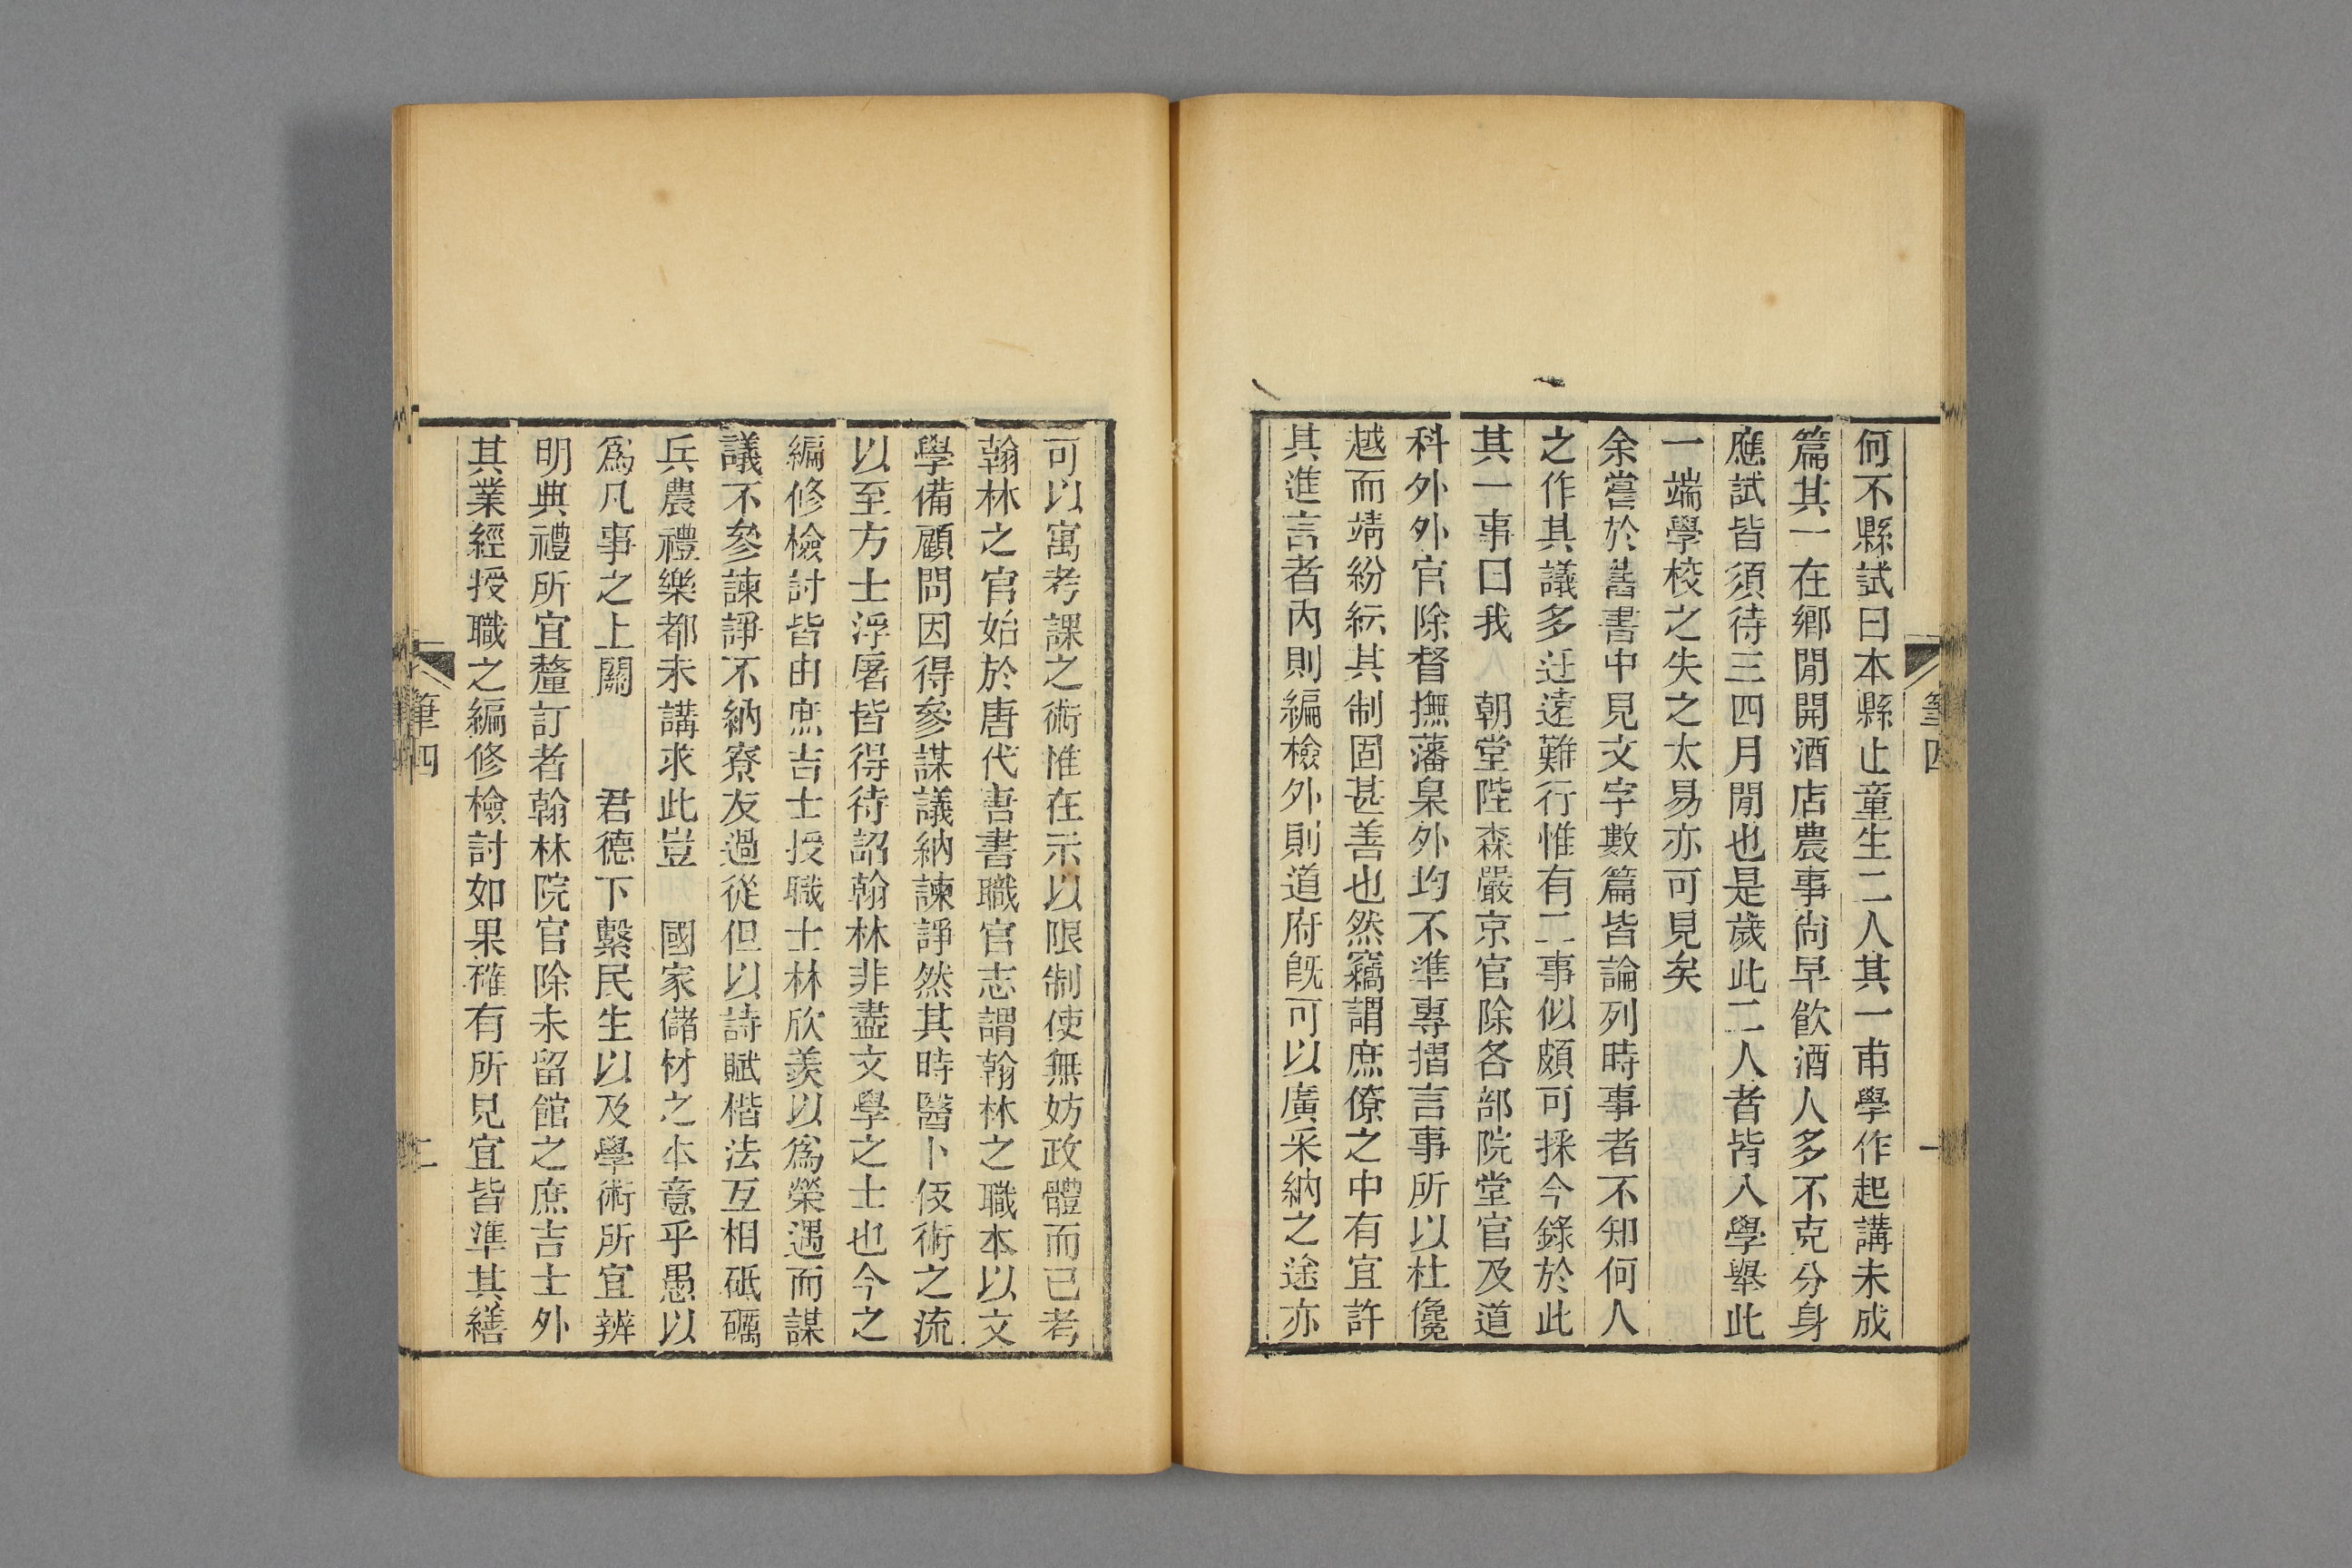 何不縣試曰本縣止童生二人其一甫學作起講未成
篇其一在鄉閒開酒店農事尙早飮酒人多不克分身
應試皆須待三四月閒也是歲此二人者皆入學舉此
一端學校之失之太易亦可見矣
余嘗於舊書中見文字數篇皆論列時事者不知何人
之作其議多迂遠難行惟有二事似頗可採今錄於此
其一事曰我 朝堂陛森嚴京官除各部院堂官及道
科外外官除督撫藩臬外均不準專摺言事所以杜儳
越而靖紛紜其制固甚善也然竊謂庶僚之中有宜許
其進言者內則編檢外則道府旣可以廣采納之途亦
筆四
一
可以寓考課之術惟在示以限制使無妨政體而已考
翰林之官始於唐代唐書職官志謂翰林之職本以文
學備顧問因得參謀議納諫諍然其時醫卜伎術之流
以至方士浮屠皆得待詔翰林非盡文學之士也今之
編修檢討皆由庶吉士授職士林欣羨以爲榮遇而謀
議不參諫諍不納寮友過從但以詩賦楷法互相砥礪
兵農禮樂都未講求此豈 國家儲材之本意乎愚以
爲凡事之上關 君德下繫民生以及學術所宜辨
明典禮所宜釐訂者翰林院官除未留館之庶吉士外
其業經授職之編修檢討如果確有所見宜皆準其繕
筆四
二